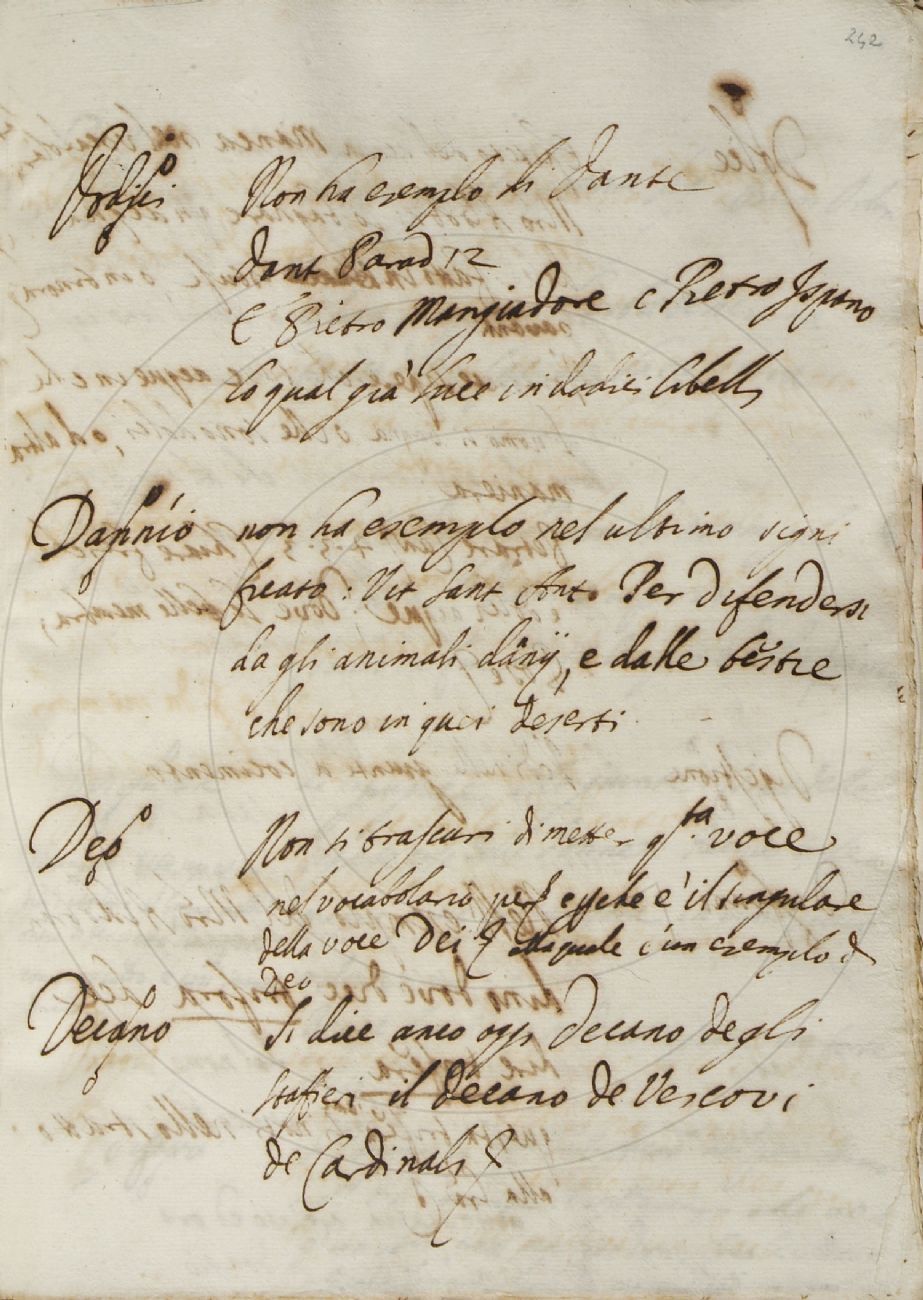 242
Dodici Non ha esempio di Dante
Dant Parad 12
E Pietro Mangiadore e Pietro Ispano
lo qual già luce in dodici libelli
Dannio non ha esempio nel ultimo signi
ficato: Vit Sant Anto Per difendersi
da gli animali dānij, e dalle bestie
che sono in quei deserti
Deo Non si trascuri di metter q.ta voce
nel vocabolario
è il singulare
della voce Dei
è un esempio d
Deo
Decano Si dice anco oggi Decano degli
staffieri il decano de Vescovi
de Cardinali